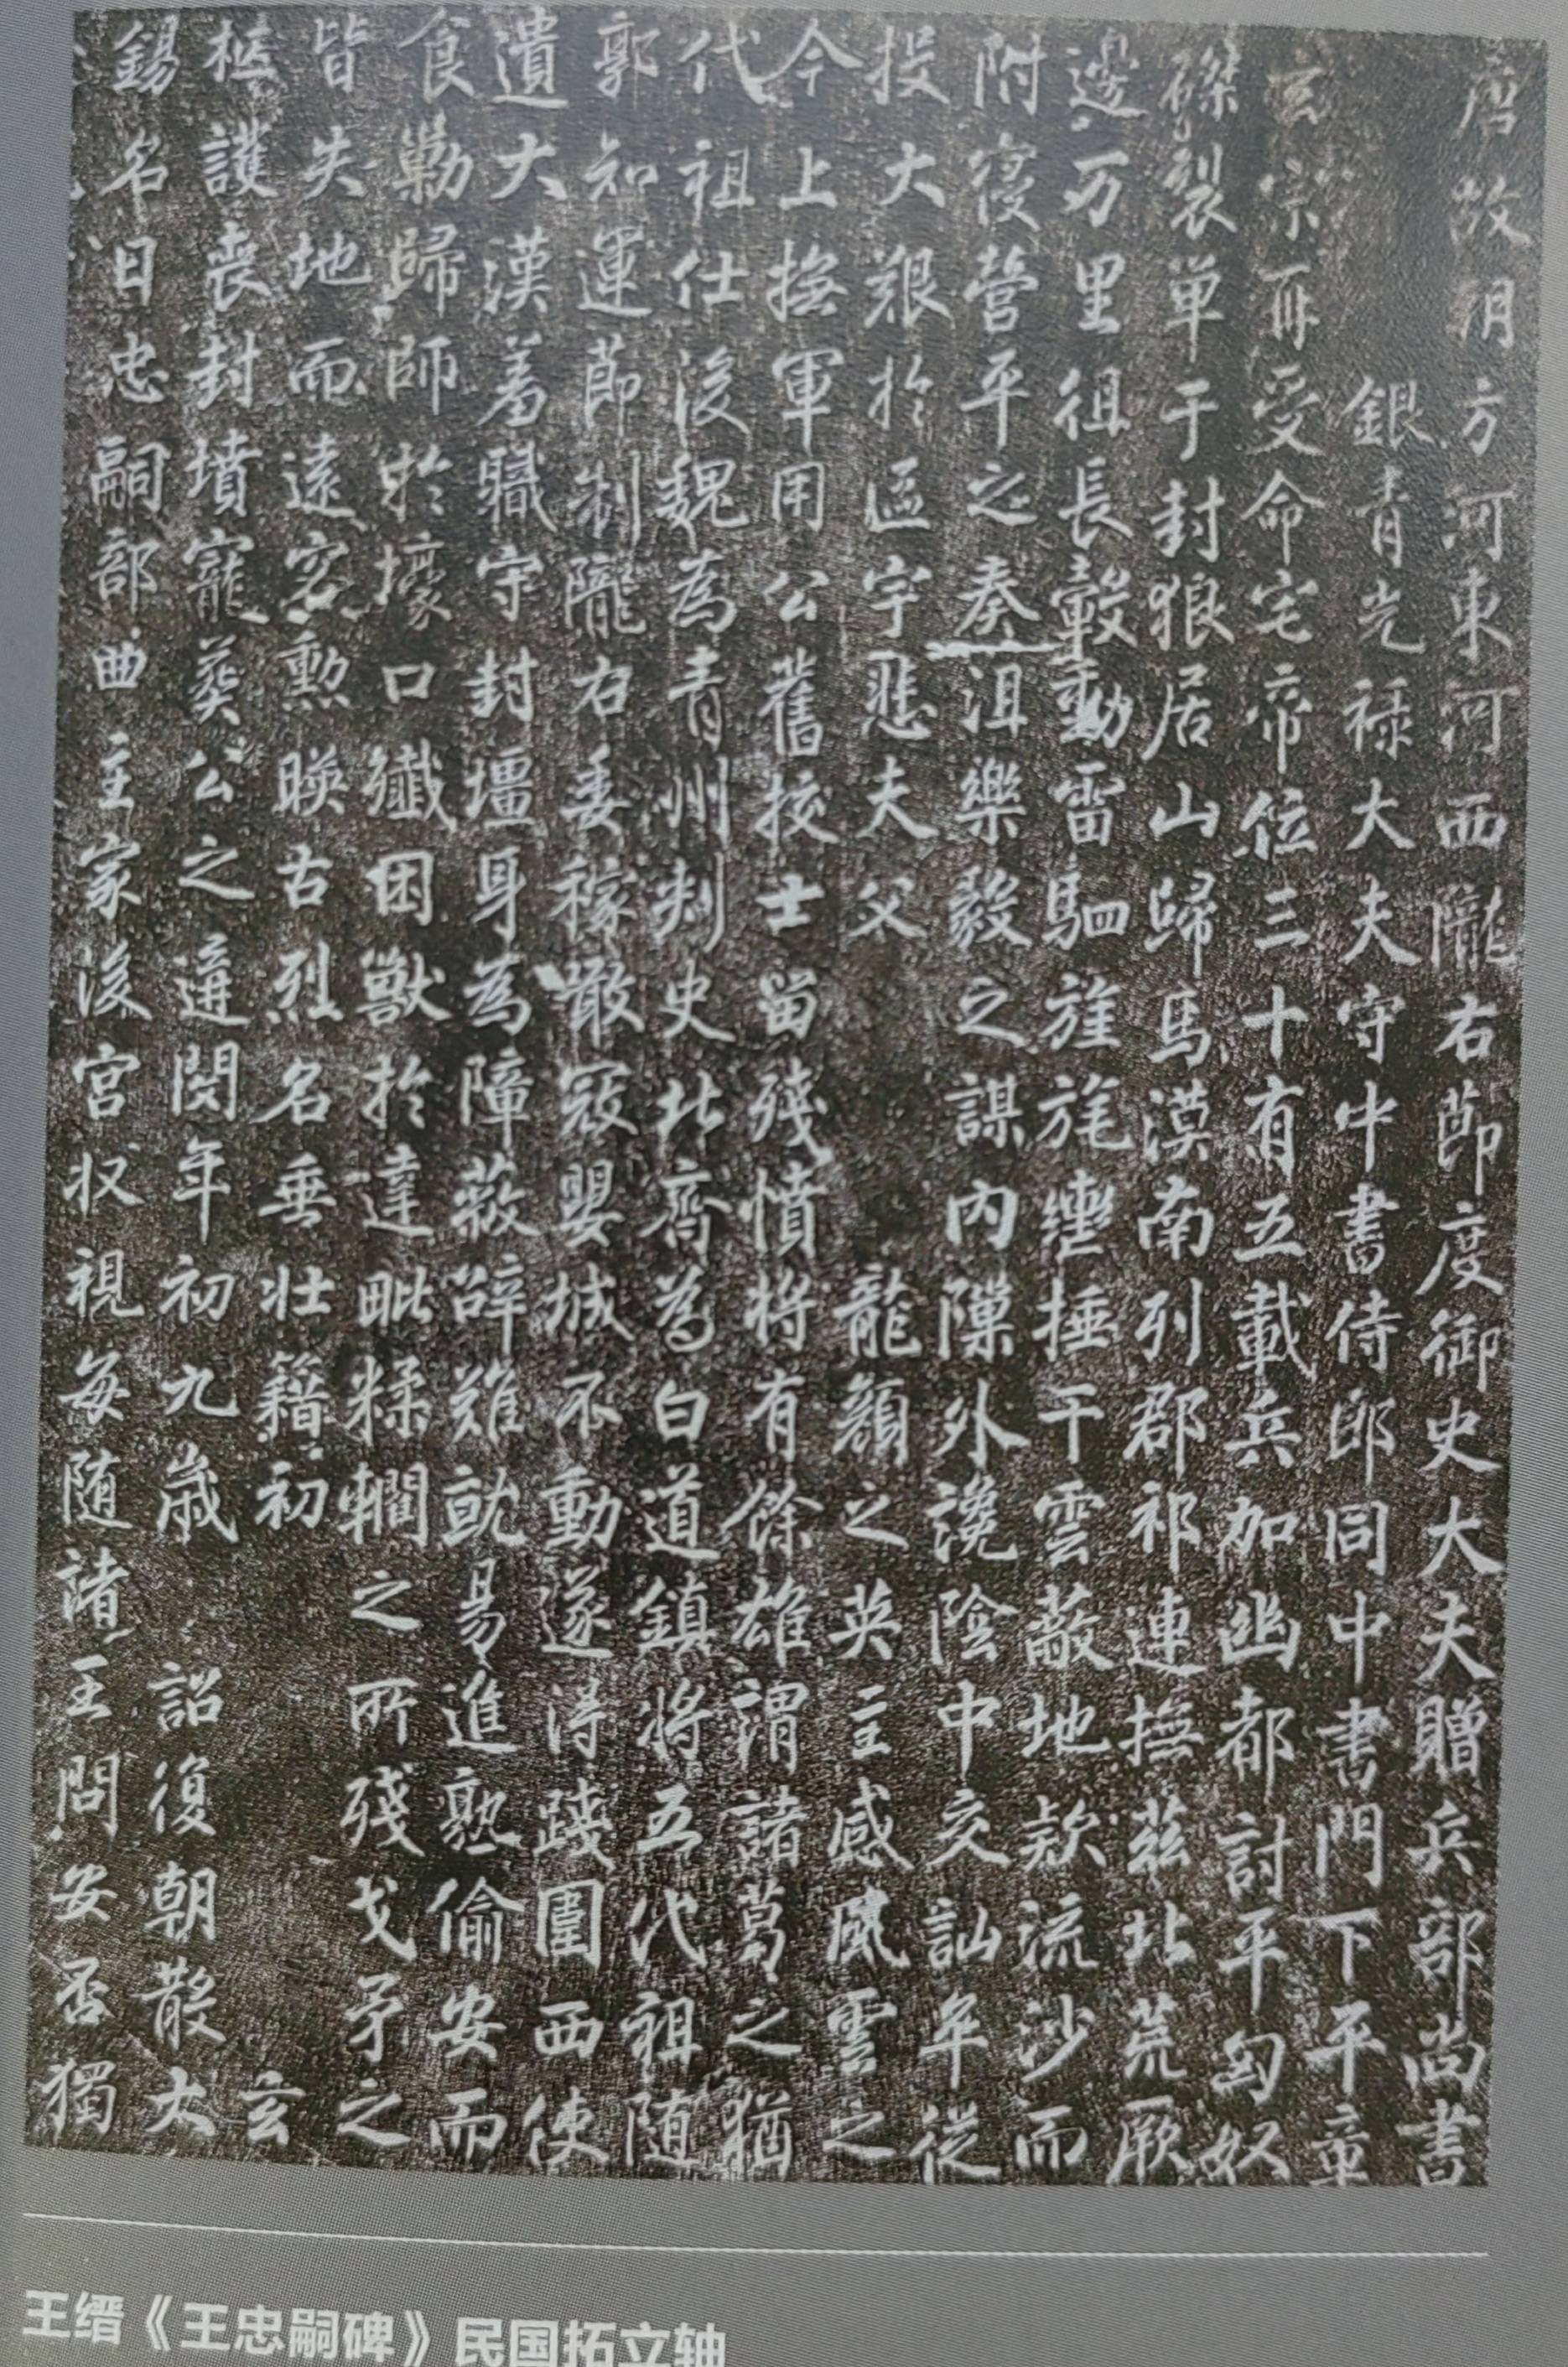 唐故朔方河東河西隴右節度御史大夫贈兵部尚書
銀青光禄大夫守中書侍郎同中書門下平章
玄宗再受命宅帝位三十有五載兵加幽都討平匈奴
磔裂單于封狼居山歸馬漠南列郡祁連撫茲北荒厥
邊万里徂長轂動雷駟旌旄轡捶干雲蔽地款流沙而
附寝營平之奏沮樂毅之謀内隟外讒陰中交訕年從
投大艱於區宇悲夫父龍顏之英主感風雲之
今上撫軍用公舊挍士留殘憤將有餘雄謂諸葛之猶
代祖仕後魏為青州刾史北齊為白道鎮將五代祖随
郭知運節制隴右委稼散寇嬰城不動遂得踐圍西使
遺大漢羞職守封壃身為障蔽辞難就易進熟偷安而
食勒歸師於壕口殱困獸於達毗糅轛之所殘戈矛之
皆失地而遠客勲暎古烈名垂壮籍初玄
柩護喪封墳寵葬公之遘閔年初九歳詔復朝散大
錫名曰忠嗣部曲主家後宮収視每随諸王問安否獨
王缙《王忠嗣碑》民国拓立轴